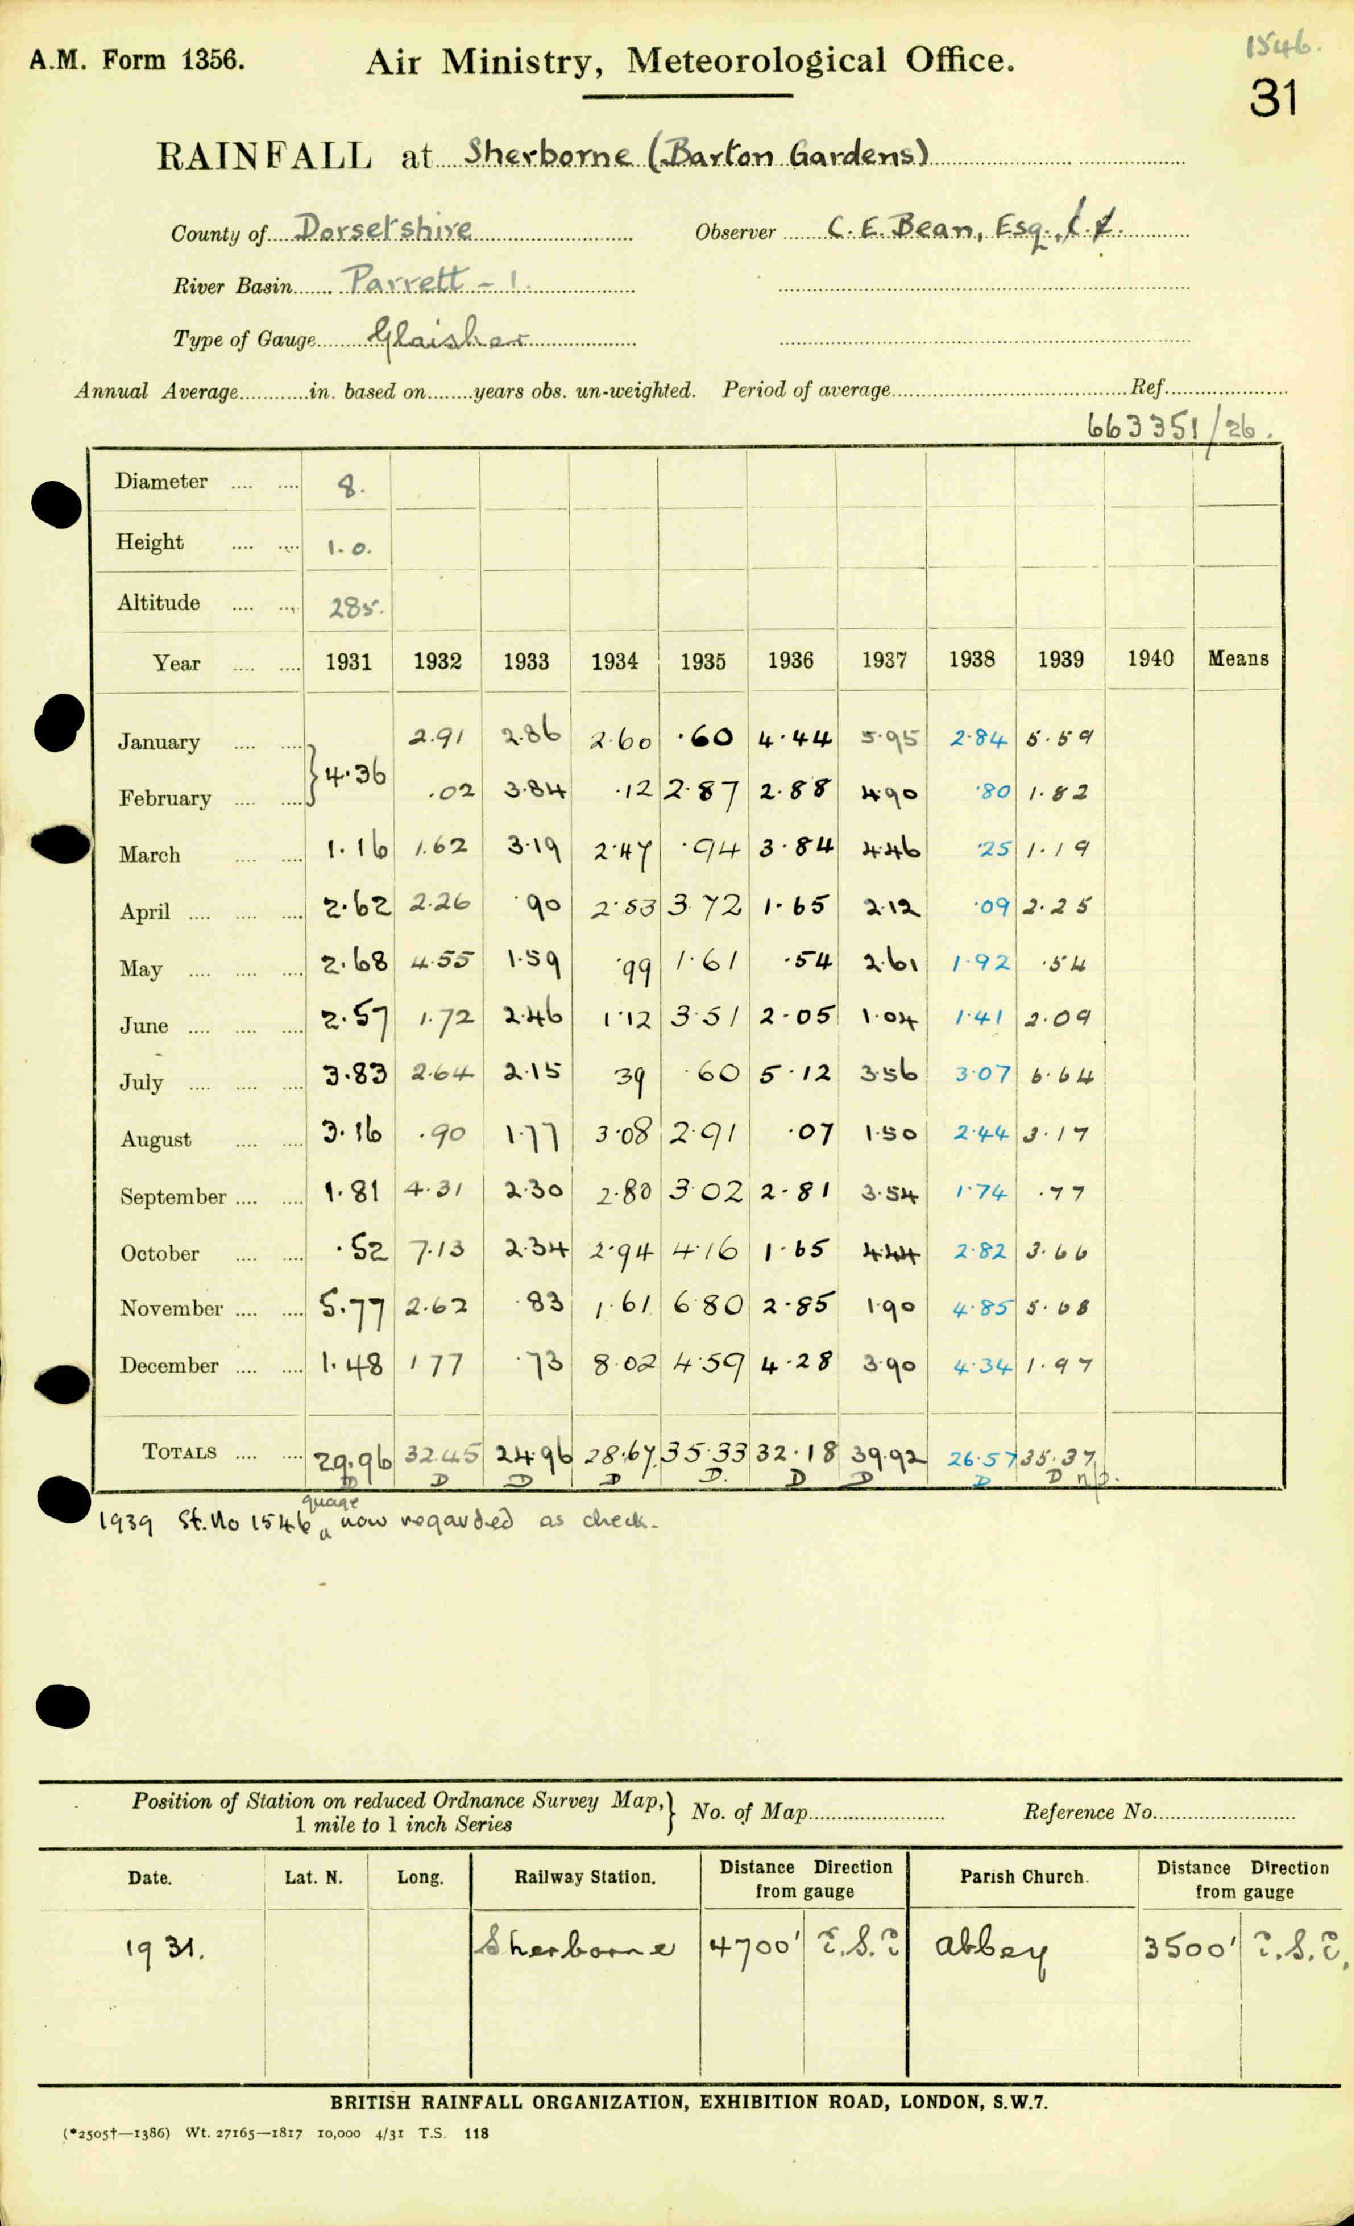 1546.
A.M. Form 1356. Air Ministry, Meteorological Office.
31
RAINFALL at Sherborne (Barton Gardens)
County of Dorsetshire Observer C. E. Bean, Esq.,
River Basin Parrett - 1.
Type of Gauge Glaisher
Annual Average in. based on years obs. un-weighted. Period of average Ref.
663351/26.
Diameter 8.
Height 1.0.
Altitude 285.
Year 1931 1932 1933 1934 1935 1936 1937 1938 1939 1940 Means
January 2.91 2.86 2.60 .60 4.44 5.95 2.84 5.59
} 4.36
February .02 3.84 .12 2.87 2.88 4.90 .80 1.82
March 1.16 1.62 3.19 2.47 .94 3.84 4.46 .25 1.19
April 2.62 2.26 .90 2.53 3.72 1.65 2.12 .09 2.25
May 2.68 4.55 1.59 .99 1.61 .54 2.61 1.92 .54
June 2.57 1.72 2.46 1.12 3.51 2.05 1.04 1.41 2.09
July 3.83 2.64 2.15 39 .60 5.12 3.56 3.07 6.64
August 3.16 .90 1.77 3.08 2.91 .07 1.50 2.44 3.17
September 1.81 4.31 2.30 2.80 3.02 2.81 3.54 1.74 .77
October .52 7.13 2.34 2.94 4.16 1.65 4.44 2.82 3.66
November 5.77 2.62 .83 1.61 6.80 2.85 1.90 4.85 5.68
December 1.48 1 77 .73 8.02 4.59 4.28 3.90 4.34 1.97
TOTALS 29.96 32.45 24.96 28.67 35.33 32.18 39.92 26.57 35.37
D D D D D. D D D D n/p.
guage
1939 St. No 1546 now regarded as check.
Position of Station on reduced Ordnance Survey Map, } No. of Map Reference No.
1 mile to 1 inch Series
Date. Lat. N. Long. Railway Station. Distance Direction from gauge Parish Church. Distance Direction from gauge
1931. Sherborne 4700' E.S.E Abbey 3500' E.S.E.
BRITISH RAINFALL ORGANIZATION, EXHIBITION ROAD, LONDON, S.W.7.
(*2505†—1386) Wt. 27165—1817 10,000 4/31 T.S. 118